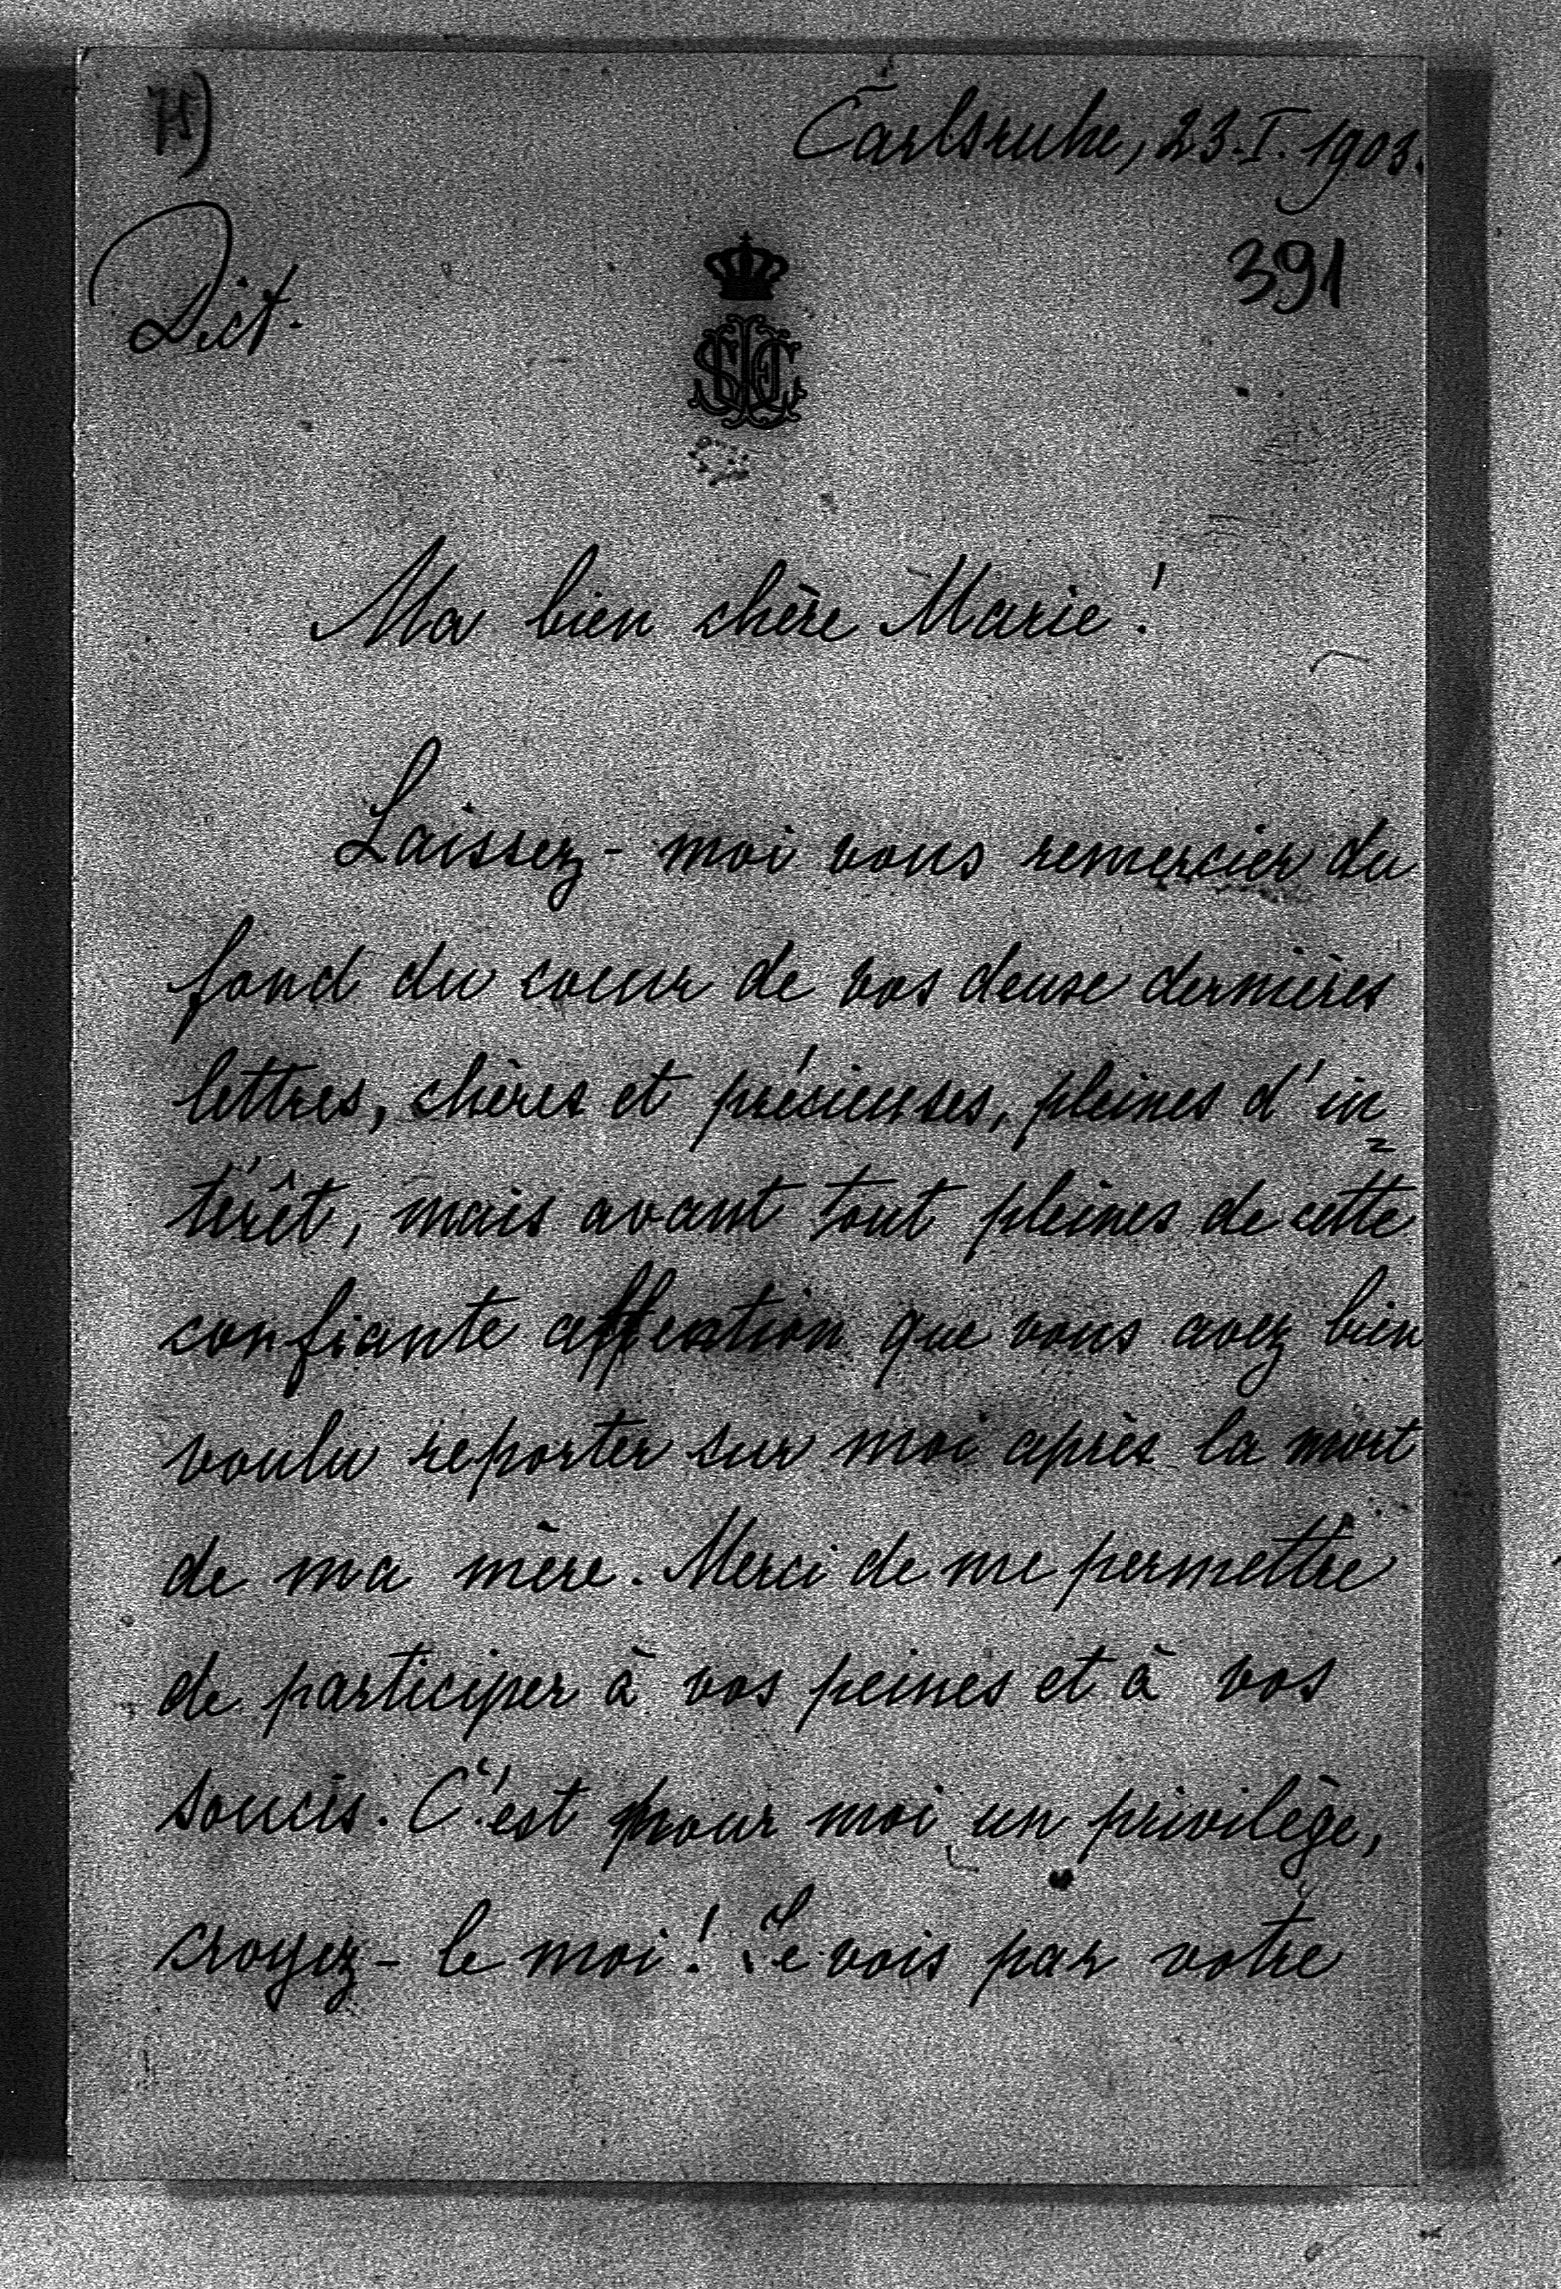 75)
Carlsruhe, 23. I. 1903.
391
Dict.
Ma bien chère Marie!
Laissez-moi vous remercier du
fond du coeur de vos deux dernières
lettres, chères et précieuses, pleines d'in=
térêt, mais avant tout pleines de cette
confiante affection que vous avez bien
voulu reporter sur moi après la mort
de ma mère. Merci de me permettre
de participer à vos peines et à vos
soucis. C'est pour moi un privilège,
croyez-le moi! Je vois par votre